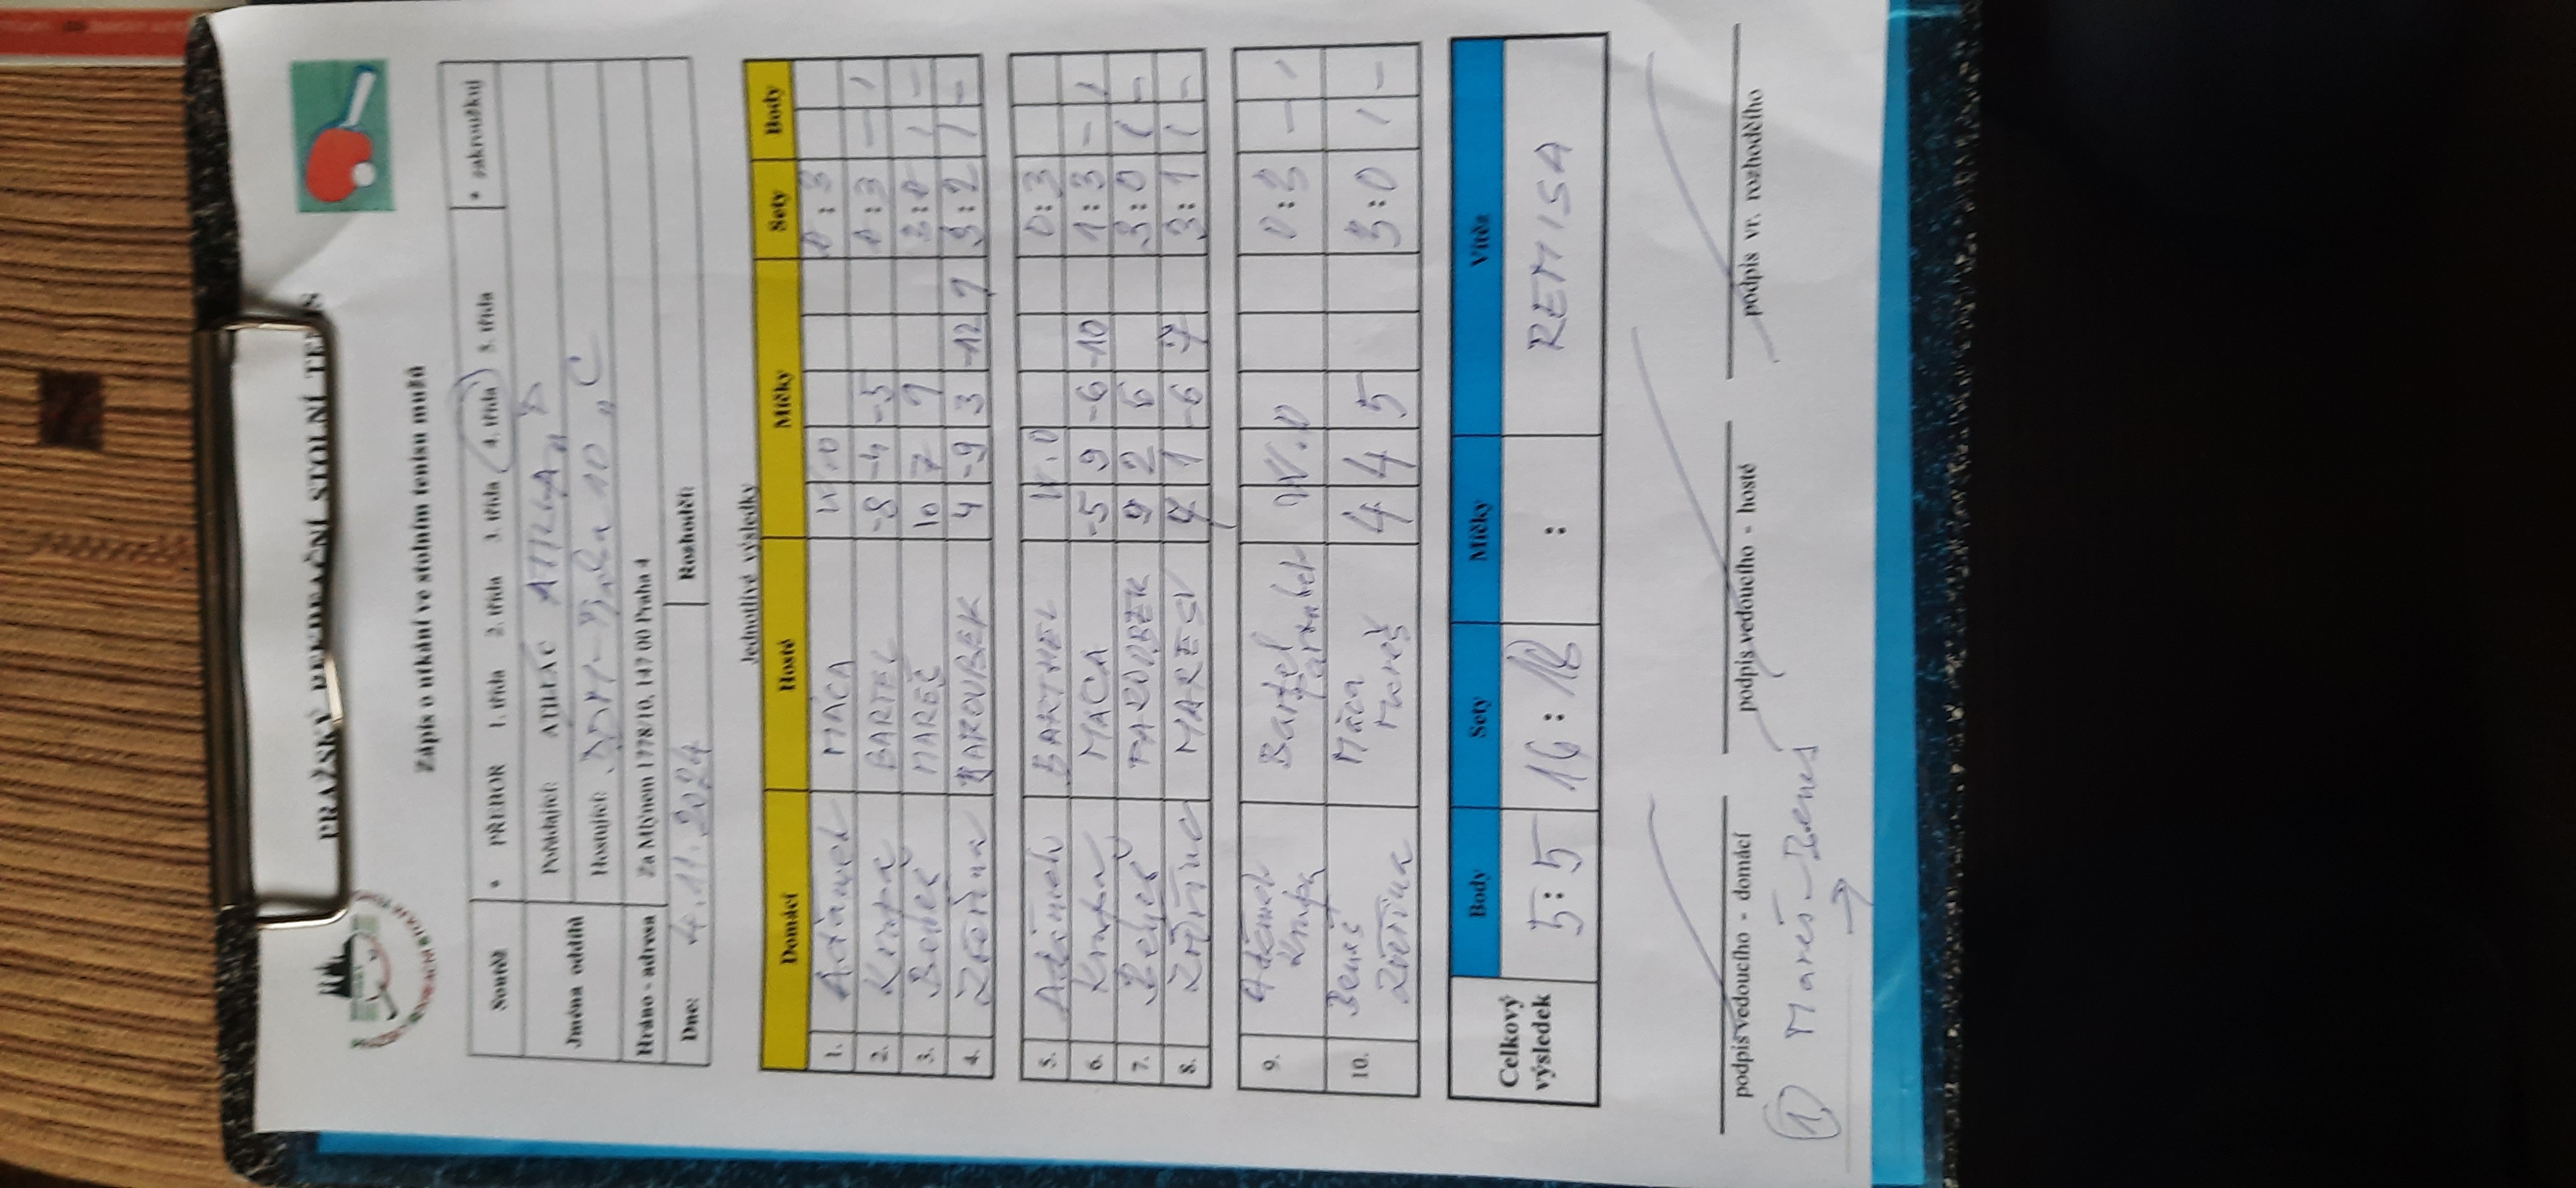 PRAŽSKÝ REKREAČNÍ STOLNÍ TENIS
Zápis o utkání ve stolním tenisu mužů
Soutěž * PŘEBOR 1. třída 2. třída 3. třída 4. třída 5. třída * zakroužkuj
Jména oddílů Pořádající: ATHLAC ATHLA "B
Hostující: Praha 10 "C
Hráno - adresa Za Mlýnem 1778/10, 147 00 Praha 4
Dne: 4.11.2024 Rozhodčí:
Jednotlivé výsledky
Domácí Hosté Míčky Sety Body
1. Adámek MÁCA W.O 0:3
2. Krupa BARTEL -8 -4 -5 0:3 - 1
3. Beneš MAREŠ 10 7 9 3:0 1 -
4. Zvěřina PAROUBEK 4 -9 3 -12 9 3:2 1 -
5. Adámek BARTHEL W.O 0:3
6. Krupa MACA -5 9 -6 -10 1:3 - 1
7. Beneš PAROUBEK 9 2 6 3:0 1 -
8. Zvěřina MAREŠ 4 1 -6 7 3:1 1 -
9. Adámek Krupa Bartel Paroubek W.O 0:3 - 1
10. Beneš Zvěřina Máca Mareš 4 4 5 3:0 1 -
Celkový výsledek Body Sety Míčky Vítěz
5:5 16:18 : REMISA
podpis vedoucího - domácí podpis vedoucího - hosté podpis vr. rozhodčího
1) Mareš - Beneš